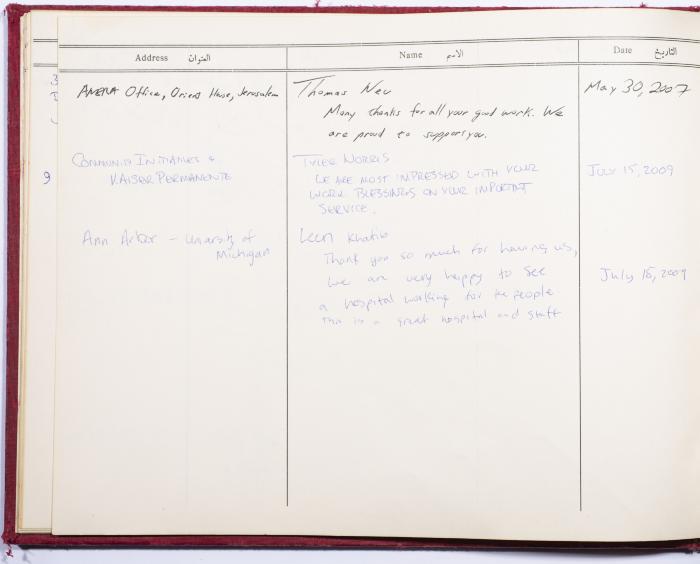 Address العنوان Name الاسم Date التاريخ
AMERA Office, Orient House, Jerusalem Thomas Neu May 30, 2007
Many thanks for all your good work. We
are proud to support you.
COMMUNITY INITIATIVES & TYLER NORRIS
KAISER PERMANENTE WE ARE MOST IMPRESSED WITH YOUR JULY 15, 2009
9 WORK. BLESSINGS ON YOUR IMPORTANT
SERVICE.
Ann Arbor - University of Leen Khatib
Michigan Thank you so much for having us,
we are very happy to see July 15, 2009
a hospital working for the people
this is a great hospital and staff